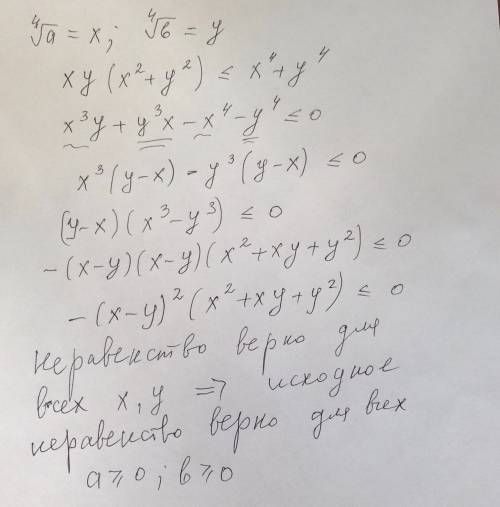 ⁴√a = x; ⁴√b = y
xy (x² + y²) ≤ x⁴ + y⁴
x³y + y³x - x⁴ - y⁴ ≤ 0
x³(y-x) - y³(y-x) ≤ 0
(y-x)(x³-y³) ≤ 0
-(x-y)(x-y)(x²+xy+y²) ≤ 0
-(x-y)²(x²+xy+y²) ≤ 0
Неравенство верно для
всех x, y => исходное
неравенство верно для всех
a ≥ 0; b ≥ 0